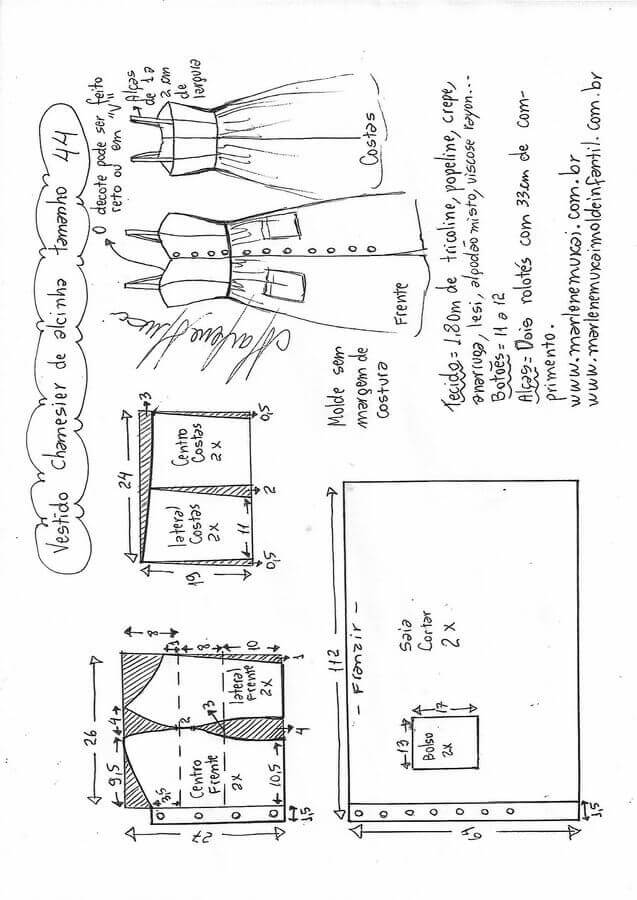 Vestido Chamesier de alcinha tamanho 44
O decote pode ser feito
reto ou em "V"
Alças
de 1 a
2 cm
de
largura
Costas
Frente
Marlene Mukai
Molde sem
margem de
costura
Tecido = 1,80m de tricoline, popeline, crepe,
anarruga, lesi, algodão misto, viscose rayon...
Botões = 11 a 12
Alças = Dois rolotés com 33cm de com-
primento.
www.marlenemukai.com.br
www.marlenemukaimoldeinfantil.com.br
24
3
19
Lateral
Costas
2x
Centro
Costas
2x
0,5
11
2
0,5
26
9,5
4
8
1
8
10
3,5
2
3
Centro
Frente
2x
lateral
Frente
2x
10,5
4
1
27
1,5
112
- Franzir -
Saia
Cortar
2x
13
17
Bolso
2x
1,5